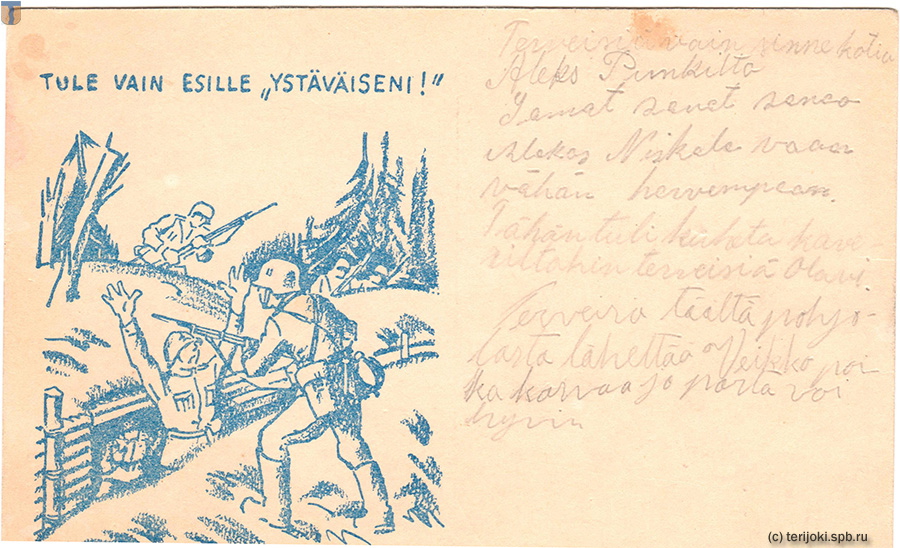 TULE VAIN ESILLE „YSTÄVÄISENI!"
Terveisiä vain sinne kotia
Aleks Punkilta
Samat sanat sanoo
Aleksa Niskala vaan
vähän
Tähän tuli
terveisiä Olavi
Terveisiä täältä pohjo-
lasta lähettää Veikko poi
ka voi
hyvin
(c) terijoki.spb.ru